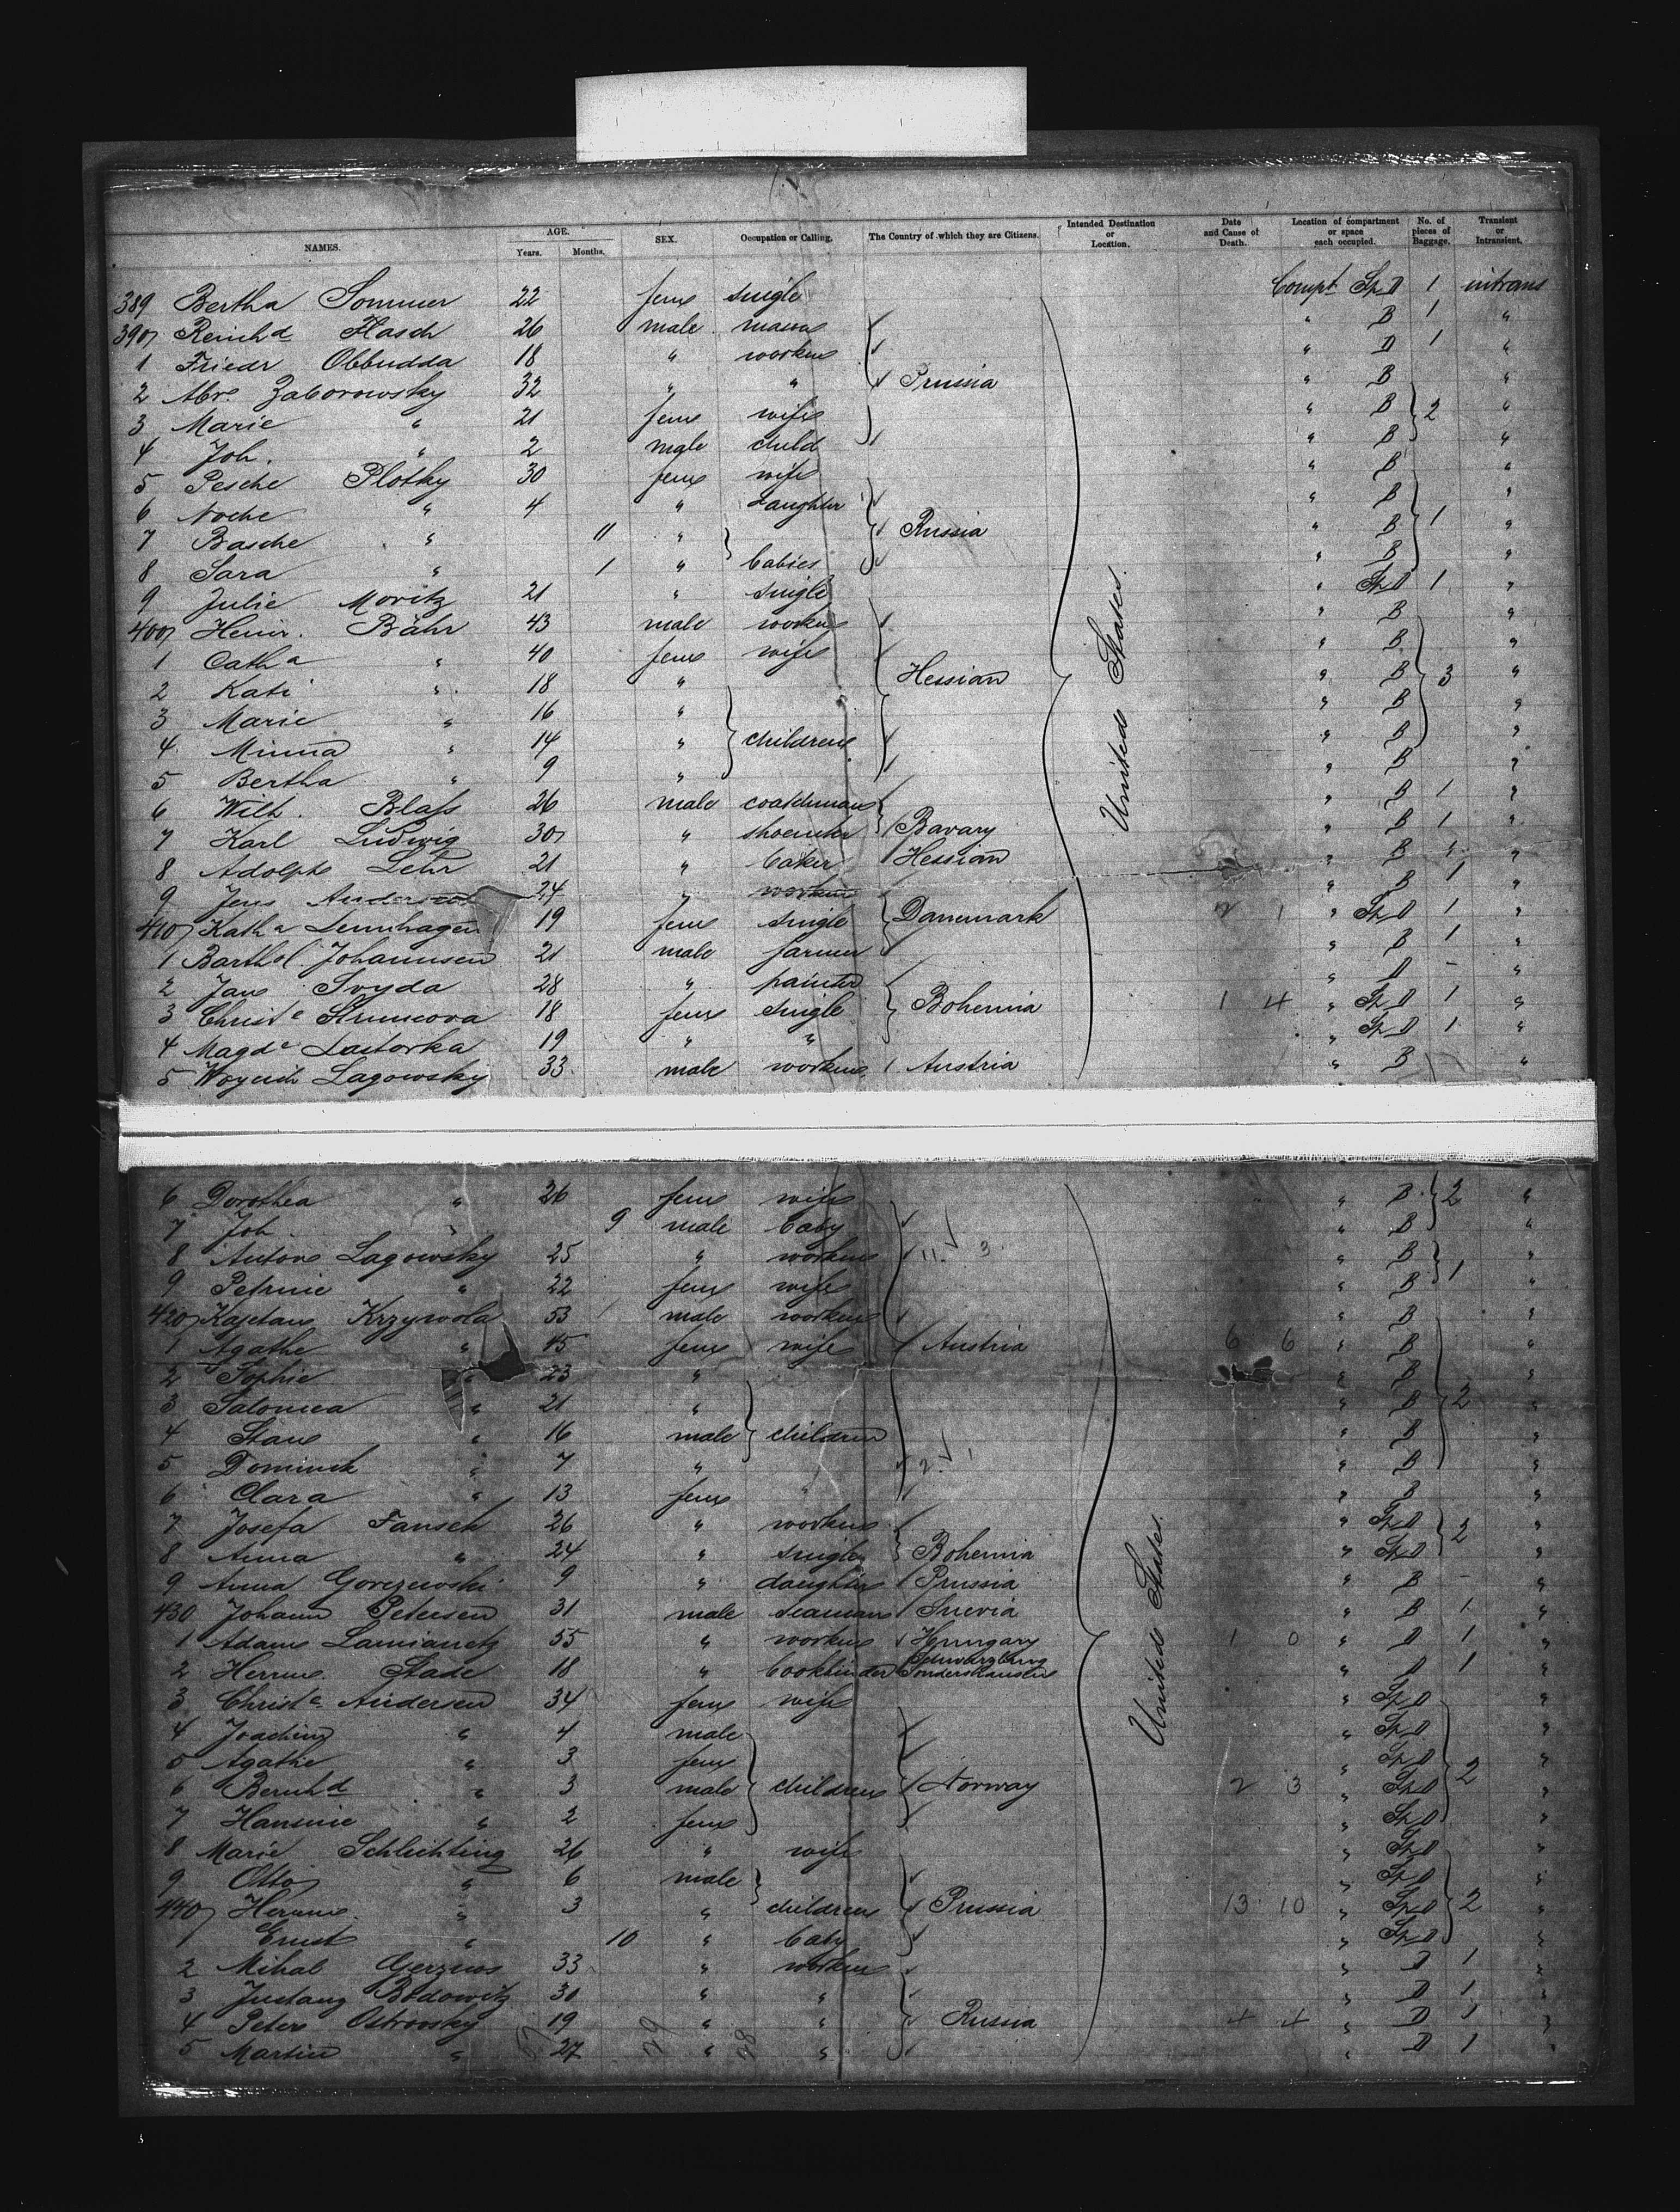 NAMES. AGE. Years. Months. SEX. Occupation or Calling. The Country of which they are Citizens. Intended Destination or Location. Date and Cause of Death. Location of compartment or space each occupied. No. of pieces of Baggage. Transient or Intransient.
389 Bertha Sommer 22 fem single Compt Sp D 1 intrans
390 Reinhd Hasch 26 male mason " B 1 "
1 Friedr Obbudda 18 " worker " D 1 "
2 Abr. Zaborowsky 32 " " Prussia " B "
3 Marie " 21 fem wife " B 2 "
4 Joh. " 2 male child " B "
5 Pesche Plotky 30 fem wife " B "
6 Noche " 4 " daughter " B "
7 Basche " 11 " Russia " B 1 "
8 Sara " 1 " babies " B "
9 Julie Moritz 21 " single " Sp D 1 "
400 Heinr. Bähr 43 male worker " B "
1 Cath a " 40 fem wife " B "
2 Kati " 18 " Hessian " B 3 "
3 Marie " 16 " " B "
4 Minna " 14 " children " B "
5 Bertha " 9 " " B "
6 Wilh. Blass 26 male coatchman " B 1 "
7 Karl Ludwig 30 " shoemkr Bavary " B 1 "
8 Adolph Lehr 21 " baker Hessian " B 1 "
9 Jens Anderson 24 " worker " B 1 "
410 Kath a Lennhagen 19 fem single Danemark 2 1 " Sp D 1 "
1 Barthol. Johannsen 21 male farmer " B 1 "
2 Jan Svyda 28 " painter " D - "
3 Christ e Struncova 18 fem single Bohemia 1 4 " Sp D 1 "
4 Magd e Lastorka 19 " " " Sp D 1 "
5 Woycich Lagowsky 33 male worker Austria " B "
United States.
6 Dorothea " 26 fem wife " B 2 "
7 Joh. " 9 male baby " B "
8 Anton Lagowsky 25 " worker 11 3 " B "
9 Petrine " 22 fem wife " B 1 "
420 Kajetan Krzywola 53 male worker " B "
1 Agathe " 45 fem wife Austria 6 6 " B "
2 Sophie " 23 " " B "
3 Salomea " 21 " " B 2 "
4 Stan " 16 male children " B "
5 Dominck " 7 " 2 " B "
6 Clara " 13 fem " " B "
7 Josefa Fansek 26 " worker " Sp D "
8 Anna " 24 " single Bohemia " Sp D 2 "
9 Anna Gorczewski 9 " daughter Prussia " B - "
430 Johann Petersen 31 male seaman Suevia " B 1 "
1 Adam Lamianetz 55 " worker Hungary 1 0 " D 1 "
2 Herm. Stade 18 " bookbinder Schwarzburg Sondershausen " D 1 "
3 Christ e Andersen 34 fem wife " Sp D "
4 Joachim " 4 male " Sp D "
5 Agathe " 3 fem " Sp D "
6 Bernhd " 3 male children Norway 2 3 " Sp D 2 "
7 Hansine " 2 fem " Sp D "
8 Marie Schlichting 26 " wife " Sp D "
9 Otto " 6 male " Sp D "
440 Herm. " 3 " children Prussia 13 10 " Sp D 2 "
1 Ernst " 10 " baby " Sp D "
2 Mihal Gerzus 33 " worker " D 1 "
3 Bodowitz 30 " " " D 1 "
4 Peter Ostrovsky 19 " " Russia 4 4 " D 1 "
5 Martin " 27 " " " D 1 "
United States.